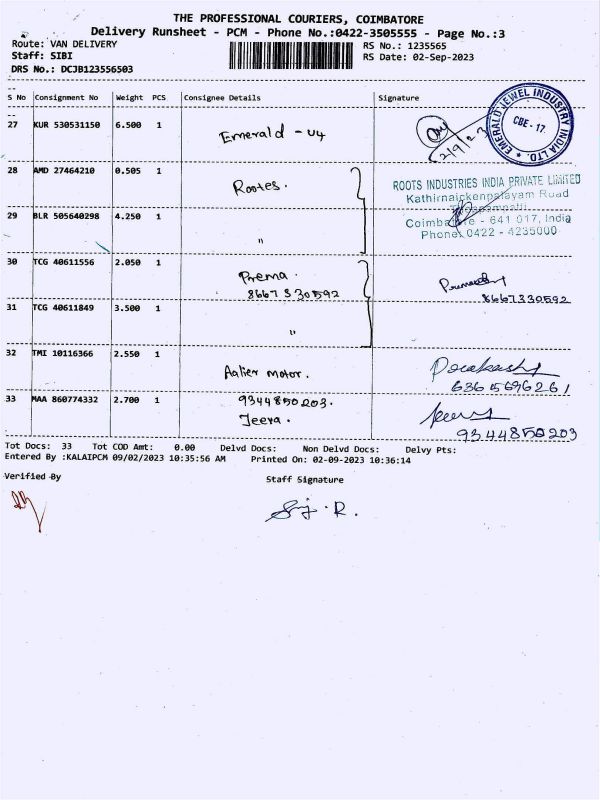 THE PROFESSIONAL COURIERS, COIMBATORE
Delivery Runsheet - PCM - Phone No.:0422-3505555 - Page No.:3
Route: VAN DELIVERY RS No.: 1235565
Staff: SIBI RS Date: 02-Sep-2023
DRS No.: DCJB123556503
S No Consignment No Weight PCS Consignee Details Signature
27 KUR 530531150 6.500 1 Emerald - U4 2/9/23
EMERALD JEWEL INDUSTRY INDIA LTD. CBE - 17.
28 AMD 27464210 0.505 1 Rootes.
ROOTS INDUSTRIES INDIA PRIVATE LIMITED
Kathirnaickenpalayam Road
29 BLR 505640298 4.250 1 "
Coimbatore - 641 017, India
Phone: 0422 - 4235000
30 TCG 40611556 2.050 1 Prema.
8667330592 8667330592
31 TCG 40611849 3.500 1 "
32 TMI 10116366 2.550 1 Motor. Prakash
6361569626 1
33 MAA 860774332 2.700 1 9344850203.
Jeeva. 9344850203
Tot Docs: 33 Tot COD Amt: 0.00 Delvd Docs: Non Delvd Docs: Delvy Pts:
Entered By :KALAIPCM 09/02/2023 10:35:56 AM Printed On: 02-09-2023 10:36:14
Verified By Staff Signature